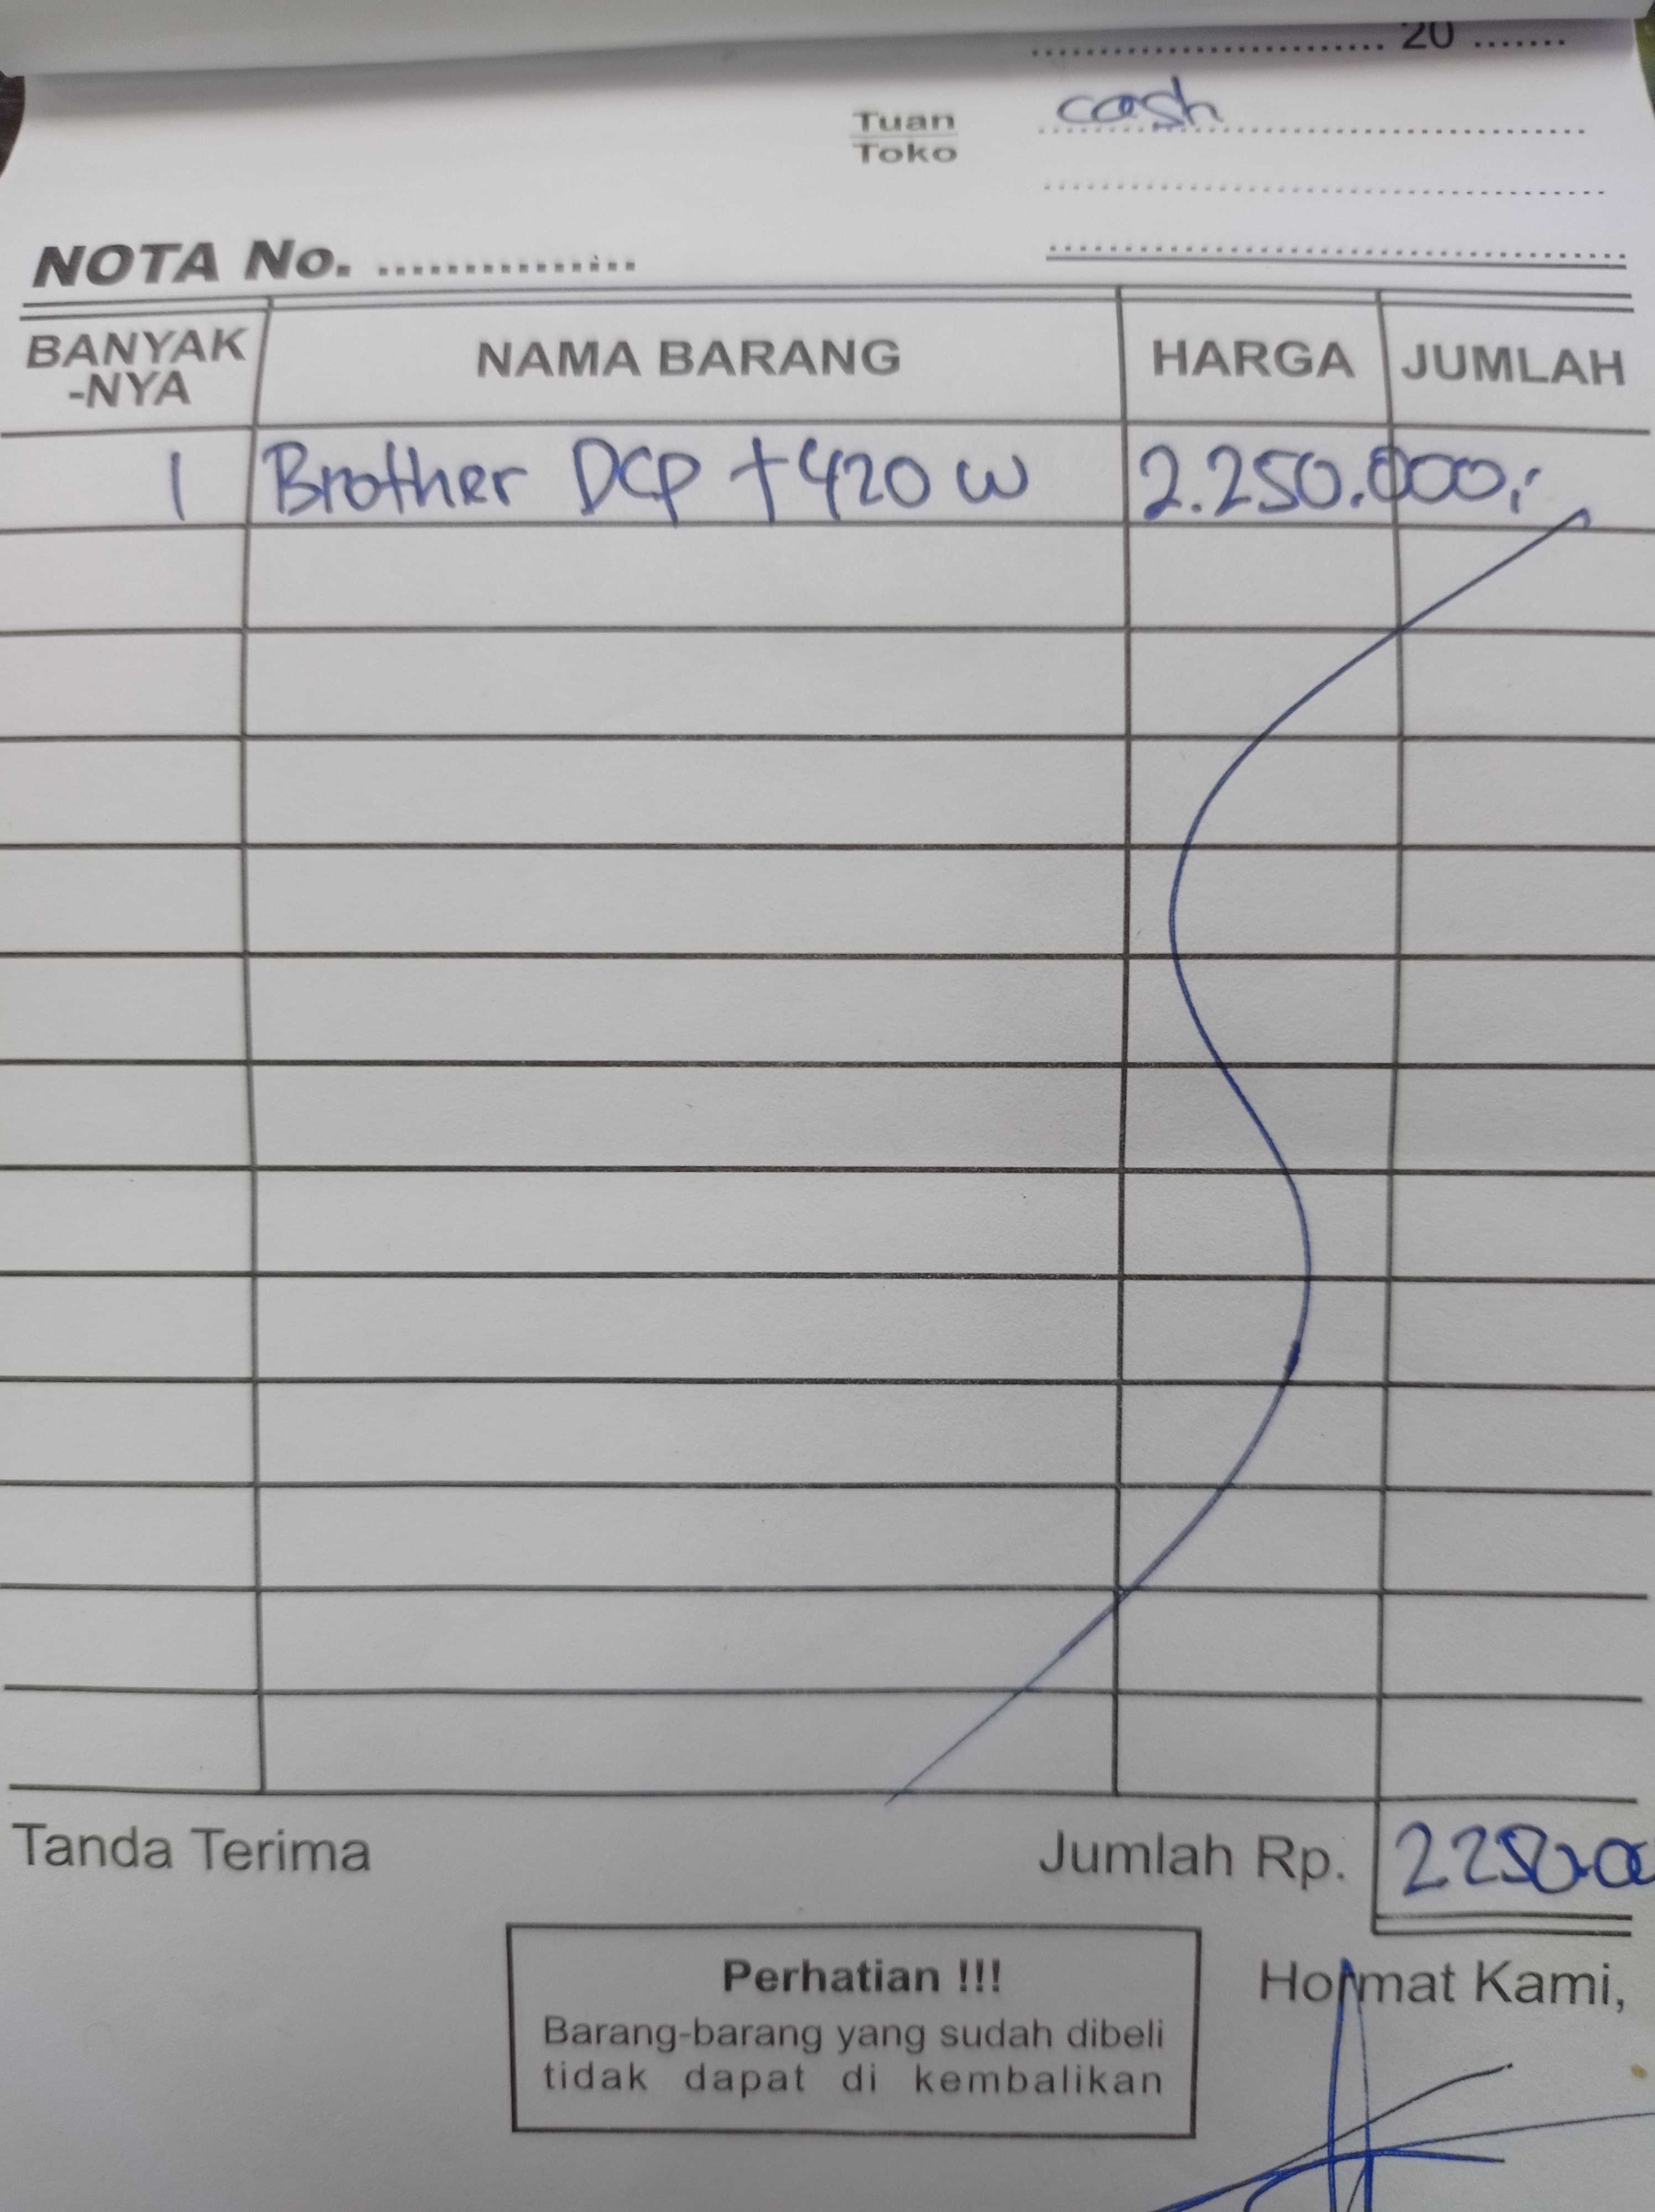 20
Tuan cash
Toko
NOTA No.
BANYAK-NYA NAMA BARANG HARGA JUMLAH
1 Brother DCP t420 w 2.250.000,-
Tanda Terima Jumlah Rp. 2250.00
Perhatian !!! Hormat Kami,
Barang-barang yang sudah dibeli
tidak dapat di kembalikan